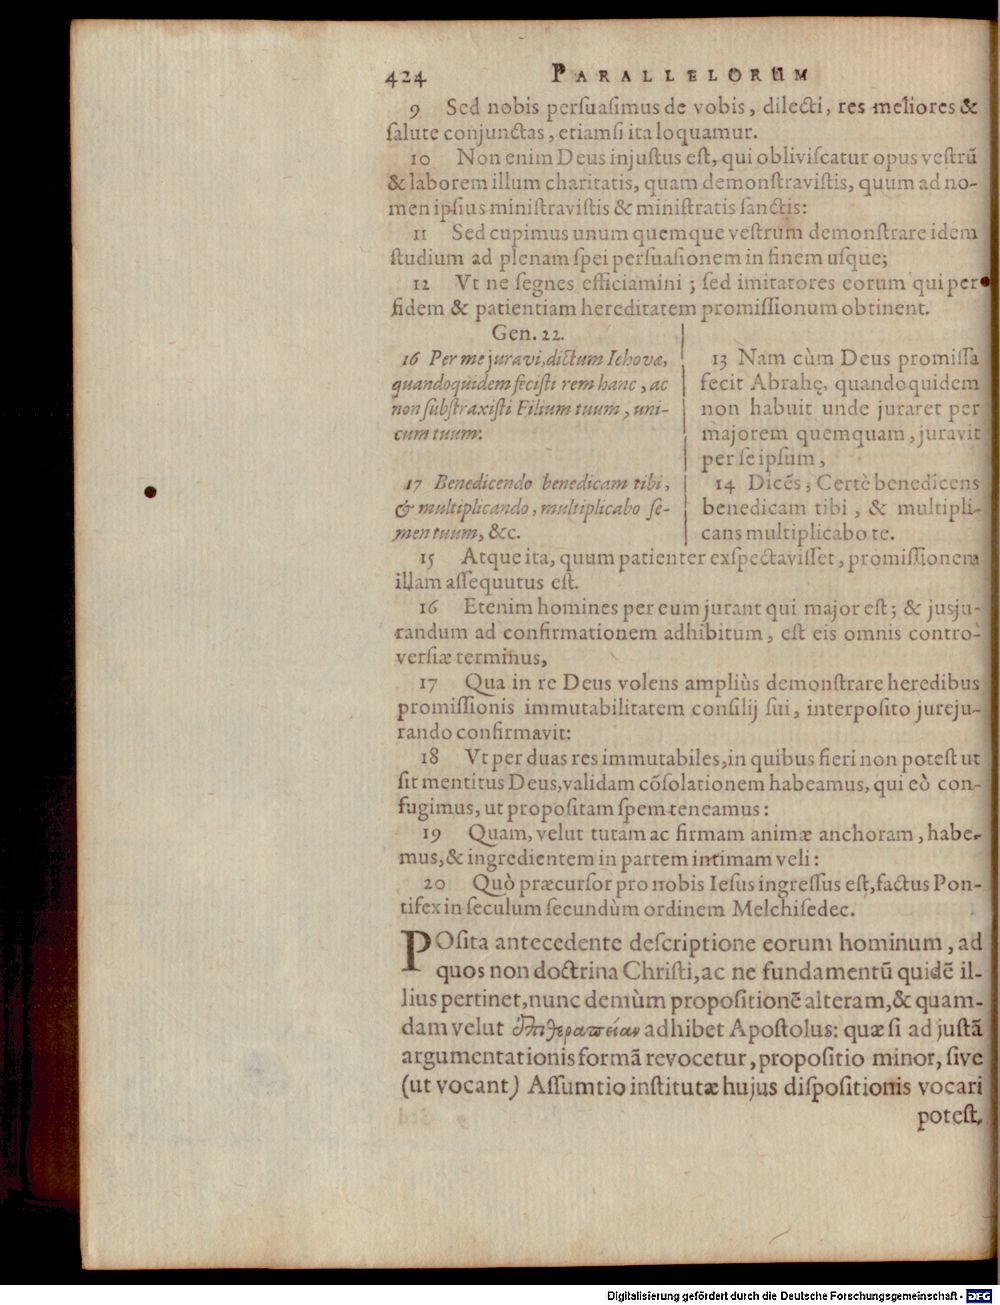 424 PARALLELORUM
9 Sed nobis persuasimus de vobis, dilecti, res meliores &
salute conjunctas, etiamsi ita loquamur.
10 Non enim Deus injustus est, qui obliviscatur opus vestrũ
& laborem illum charitatis, quam demonstravistis, quum ad no-
men ipsius ministravistis & ministratis sanctis:
11 Sed cupimus unum quemque vestrum demonstrare idem
studium ad plenam spei persuasionem in finem usque;
12 Vt ne segnes efficiamini; sed imitatores eorum qui per
fidem & patientiam hereditatem promissionum obtinent.
Gen. 22.
16 Per me juravi, dictum Iehovæ,
quandoquidem fecisti rem hanc, ac
non substraxisti Filium tuum, uni-
cum tuum:
17 Benedicendo benedicam tibi,
& multiplicando, multiplicabo se-
men tuum, &c.
13 Nam cùm Deus promissa
fecit Abrahę, quandoquidem
non habuit unde juraret per
majorem quemquam, juravit
per se ipsum,
14 Dicẽs; Certè benedicens
benedicam tibi, & multipli-
cans multiplicabo te.
15 Atque ita, quum patienter exspectavisset, promissionem
illam assequutus est.
16 Etenim homines per eum jurant qui major est; & jusju-
randum ad confirmationem adhibitum, est eis omnis contro-
versiæ terminus,
17 Qua in re Deus volens ampliùs demonstrare heredibus
promissionis immutabilitatem consilij sui, interposito jureju-
rando confirmavit:
18 Vt per duas res immutabiles, in quibus fieri non potest ut
sit mentitus Deus, validam cõsolationem habeamus, qui eò con-
fugimus, ut propositam spem teneamus:
19 Quam, velut tutam ac firmam animæ anchoram, habe-
mus, & ingredientem in partem intimam veli:
20 Quò præcursor pro nobis Iesus ingressus est, factus Pon-
tifex in seculum secundùm ordinem Melchisedec.
POsita antecedente descriptione eorum hominum, ad
quos non doctrina Christi, ac ne fundamentũ quidẽ il-
lius pertinet, nunc demùm propositionẽ alteram, & quam-
dam velut ἐπιθεραπείαν adhibet Apostolus: quæ si ad justã
argumentationis formã revocetur, propositio minor, sive
(ut vocant) Assumtio institutæ hujus dispositionis vocari
potest.
Digitalisierung gefördert durch die Deutsche Forschungsgemeinschaft - DFG